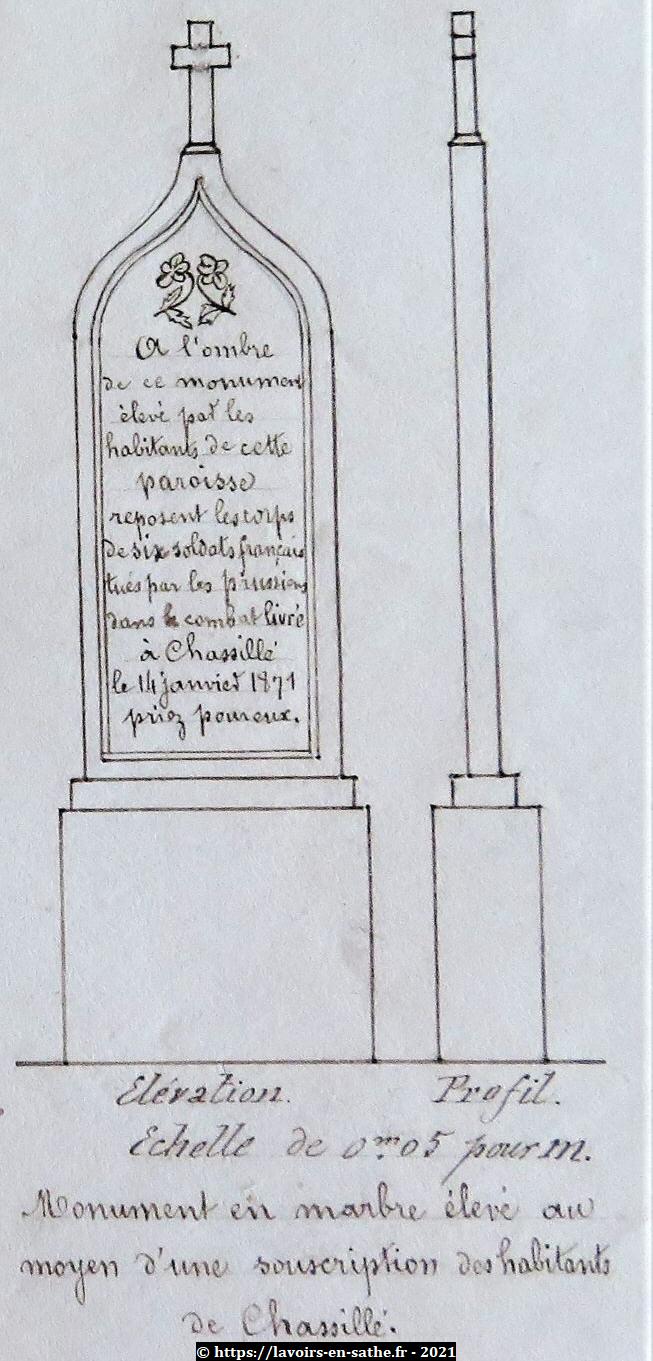 A l'ombre
de ce monument
élevé par les
habitants de cette
paroisse
reposent les corps
de six soldats français
tués par les prussiens
dans le combat livré
à Chassillé
le 14 janvier 1871
priez pour eux.
Elévation. Profil.
Echelle de 0m05 pour m.
Monument en marbre élevé au
moyen d'une souscription des habitants
de Chassillé.
© https://lavoirs-en-sathe.fr - 2021